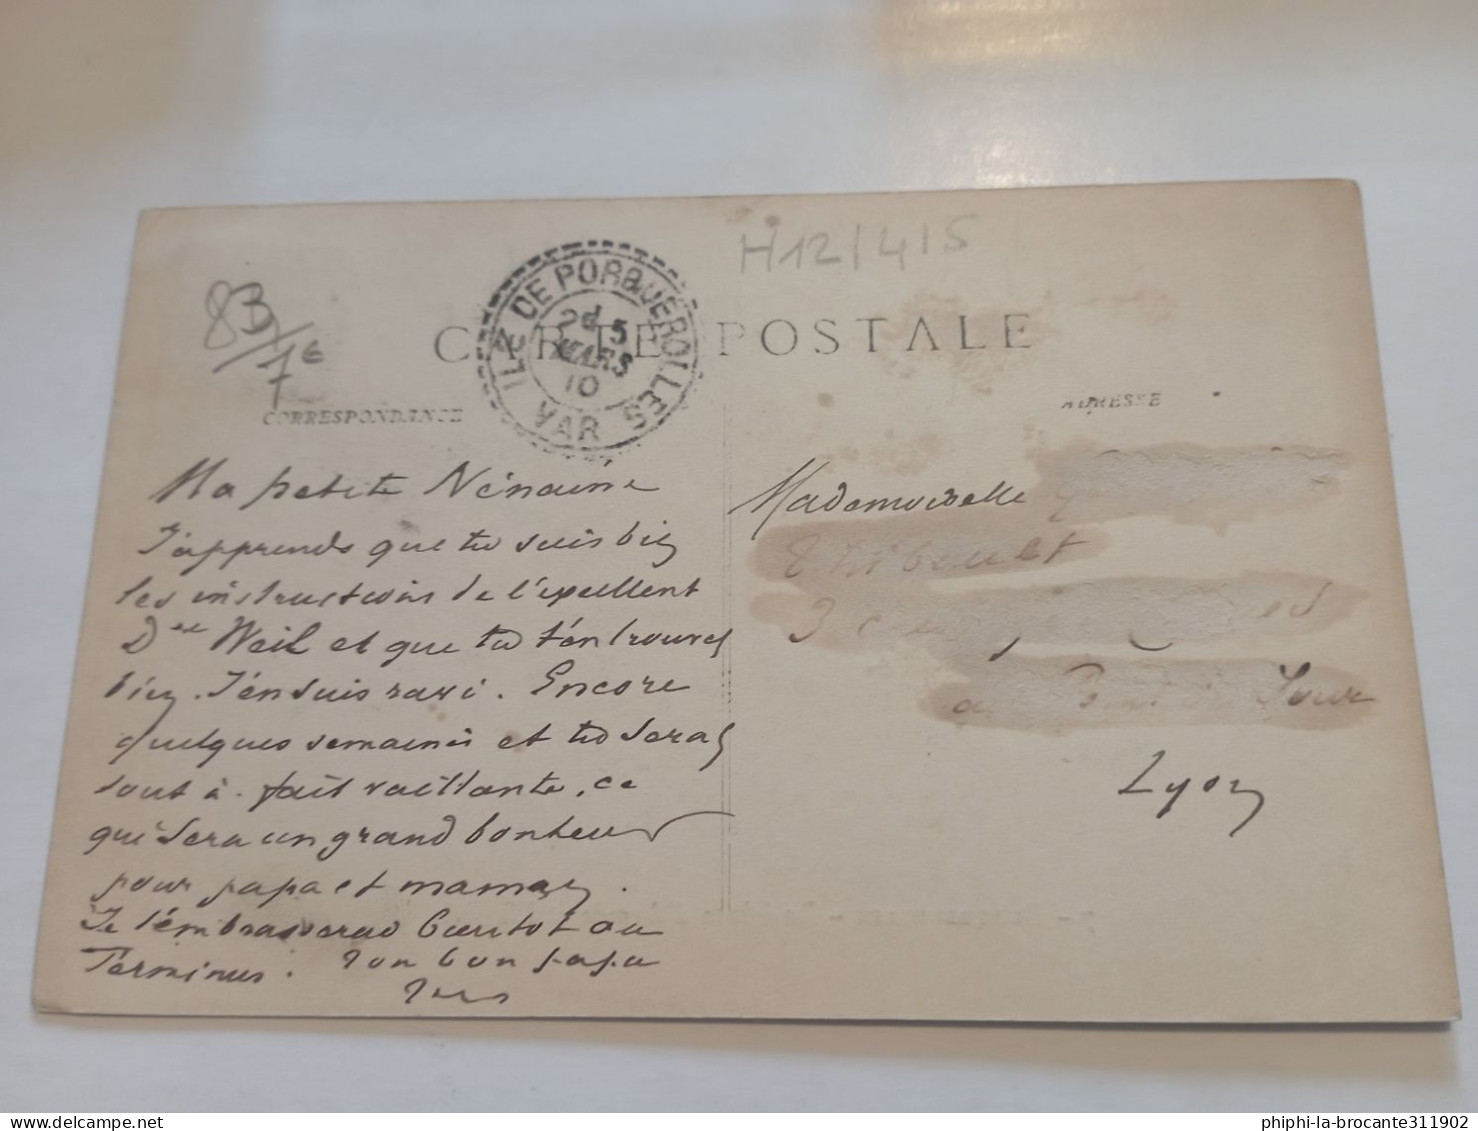 H12/4/5
83
7€
CARTE POSTALE
ILE DE PORQUEROLLES
2E 5
MARS
10
VAR
CORRESPONDANCE
ADRESSE
Ma petite Nénaine
J'apprends que tu suis bien
les instructions de l'excellent
Dr Weil et que tu t'en trouves
bien. J'en suis ravi. Encore
quelques semaines et tu seras
tout à fait vaillante, ce
qui sera un grand bonheur
pour papa et maman.
Je t'embrasserai bientôt au
Terminus. Ton bon papa
Mademoiselle
Thibault
3
Lyon
phiphi-la-brocante311902